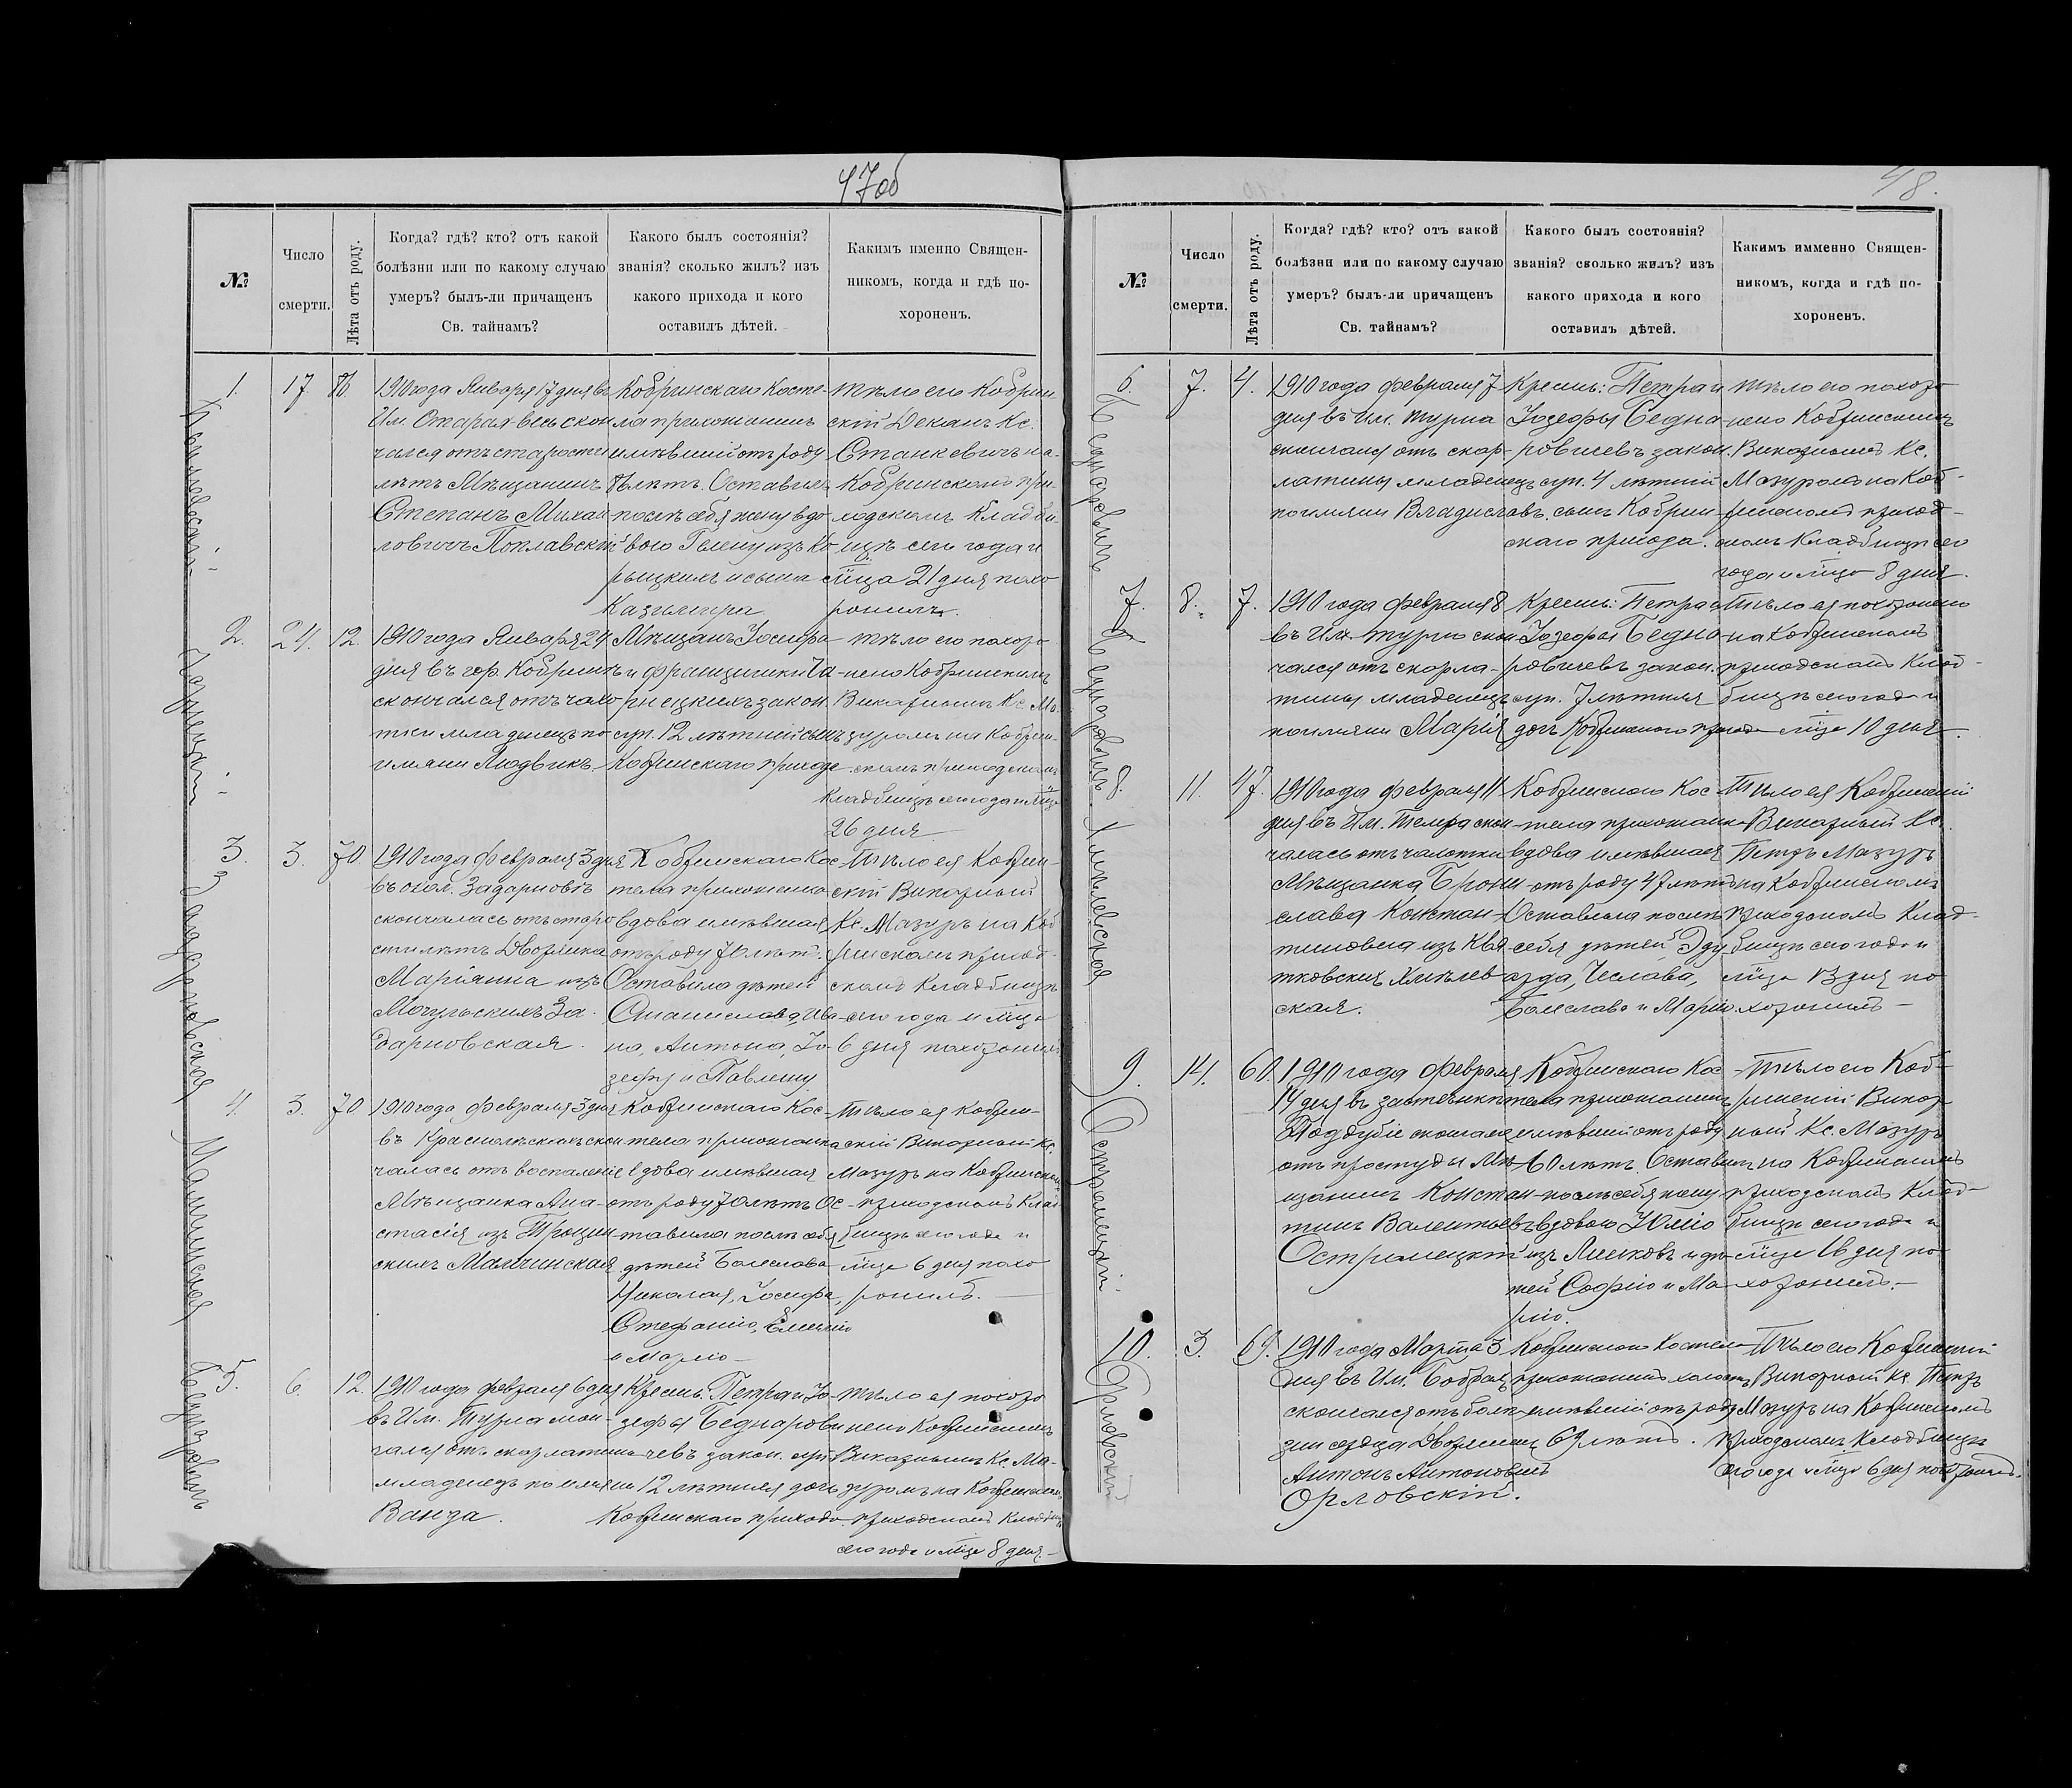 47об
№
Число смерти.
Лѣта отъ роду.
Когда? гдѣ? кто? отъ какой болѣзни или по какому случаю умеръ? былъ-ли причащенъ Св. тайнамъ?
Какого былъ состоянія? званія? сколько жилъ? изъ какого прихода и кого оставилъ дѣтей.
Какимъ именно Священникомъ, когда и гдѣ похороненъ.
1.
17.
1910 года Января 17 дня въ
Им. Старая-весь скон
чался отъ старости
лѣтъ Мѣщанинъ
Степанъ Михаи
ловичъ Поплавскій
Кобринскаго Косте-
ла прихожанинъ
имѣвшій отъ роду
лѣтъ. Оставилъ
послѣ себя жену вдо
вою Гелену изъ Ко
рыцкихъ и сына
Казимира
тѣло его Кобрин
скій Деканъ Кс.
Станкевичъ на
Кобринскомъ при-
ходскомъ кладби-
щѣ сего года и
мца 21 дня похо
ронилъ.
2.
24.
12.
1910 года Января 24
дня въ гор. Кобринѣ
скончался отъ чахо
тки младенецъ по
имяни Людвикъ
Мѣщанъ Іосифа
и Францишки Ча
рнецкихъ закон
суп. 12 лѣтній сынъ
Кобринскаго прихода
тѣло его похоро
нено Кобринскимъ
Викарнымъ Кс Ма
зуромъ на Кобрин-
скомъ приходскомъ
кладбищѣ сего года и мца
26 дня
3.
3.
70.
1910 года Февраля 3 дня
въ окол. Задарновѣ
скончалась отъ старо
сти лѣтъ Дворянка
Маріянна изъ
Мочульскихъ За-
дарновская.
Кобринскаго Кос
тела прихожанка
вдова имѣвшая
отъ роду 70 лѣтъ.
Оставила дѣтей
Станислава, Ива
на, Антона, Іо-
зефу и Павлину
Тѣло ея Кобрин-
скій Викарный
Кс. Мазуръ на Коб
ринскомъ приход-
скомъ кладбищѣ
сего года и мца
6 дня похоронилъ
4.
3.
70
1910 года Февраля 3 дня
въ скон
чалась отъ воспаленія
Мѣщанка Ана-
стасія изъ
скихъ Малчинская
Кобринскаго Кос-
тела прихожанка
вдова имѣвшая
отъ роду 70 лѣтъ Ос-
тавила послѣ себя
дѣтей Болеслава
Николая, Іосифа,
Стефанію, Емилію
и Марію
Тѣло ея Кобрин-
скій Викарный Кс.
Мазуръ на Кобринскомъ
приходскомъ клад
бищѣ сего года и
мца 6 дня похо
ронилъ.
5.
6.
12.
1910 года Февраля 6 дня
въ Им. Турна скон-
чался отъ скарлатины
младенецъ по имяни
Ванда.
Крестъ. Петра и Іо-
зефы Беднарови
чевъ закон. суп
12 лѣтняя дочь
Кобринскаго прихода
тѣло ея похоро
нено Кобринскимъ
Викарнымъ Кс. Ма-
зуромъ на Кобринскомъ
приходскомъ кладбищѣ
сего года и мца 8 дня.
Задарновская
Малчинская
Беднаровичъ
48.
№
Число смерти.
Лѣта отъ роду.
Когда? гдѣ? кто? отъ какой болѣзни или по какому случаю умеръ? былъ-ли причащенъ Св. тайнамъ?
Какого былъ состоянія? званія? сколько жилъ? изъ какого прихода и кого оставилъ дѣтей.
Какимъ имменно Священникомъ, когда и гдѣ похороненъ.
6.
7.
4.
1910 года Февраля 7
дня въ Им. Турна
скончался отъ скар-
латины младенецъ
по имяни Владиславъ.
Крестъ: Петра и
Іозефы Бедна-
ровичевъ закон.
суп. 4 лѣтній
сынъ Кобрин-
скаго прихода.
тѣло его похоро
нено Кобринскимъ
Викарнымъ Кс.
Мазуромъ на Коб-
ринскомъ приход-
скомъ кладбищѣ сего
года и мца 8 дня.
7.
8.
7.
1910 года Февраля 8
въ Им. Турна скон-
чался отъ скарла-
тины младенецъ
по имяни Марія
Крестъ: Петра и
Іозефы Бедна
ровичевъ закон.
суп. 7 лѣтняя
дочь Кобринскаго прихода
Тѣло ея похоронено
на Кобринскомъ
приходскомъ клад-
бищѣ сего года и
мца 10 дня.
8.
11.
47.
1910 года Февраля 11
дня въ Им. скон
чалась отъ чахотки
Мѣщанка Брони
слава Констан-
тиновна изъ Квя
тковскихъ Хмѣлев
ская.
Кобринскаго Кос
тела прихожанка
вдова имѣвшая
отъ роду 47 лѣтъ
Оставила послѣ
себя дѣтей Эду
арда, Чеслава,
Болеслава и Марію.
Тѣло ея Кобринскій
Викарный Кс.
Петръ Мазуръ
на Кобринскомъ
приходскомъ клад-
бищѣ сего года и
мца 13 дня по
хоронилъ
9.
14.
60.
1910 года Февраля
14 дня въ застѣнкѣ
Поддубіе скончался
отъ простуды Мѣ-
щанинъ Констан-
тинъ Валентьевъ
Остромецкій
Кобринскаго Кос
тела прихожанинъ
имѣвшій отъ роду
60 лѣтъ. Оставилъ
послѣ себя жену
вдовою Юлію
изъ и дѣ-
тей Софію и Ма-
рію.
Тѣло его Коб-
ринскій Викар
ный Кс. Мазуръ
на Кобринскомъ
приходскомъ клад-
бищѣ сего года и
мца 16 дня по-
хоронилъ.
10.
3.
69.
1910 года Марта 3
дня въ Им.
скончался отъ болѣ
зни сердца Дворянинъ
Антонъ Антоновичъ
Орловскій.
Кобринскаго Костела
прихожанинъ холостъ
имѣвшій отъ роду
69 лѣтъ.
Тѣло его Кобринскій
Викарный Кс. Петръ
Мазуръ на Кобринскомъ
приходскомъ кладбищѣ
сего года и мца 6 дня похоронилъ.
Беднаровичъ
Беднаровичъ
Хмѣлевская
Остромецкій
Орловскій